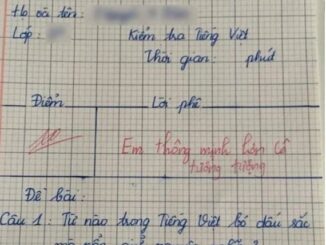 Họ và tên:
Lớp:
Kiểm tra Tiếng Việt
Thời gian: phút
Điểm
Lời phê
10
Em thông minh hơn cô
tưởng tượng
Đề bài:
Câu 1: Từ nào trong Tiếng Việt bỏ dấu sắc